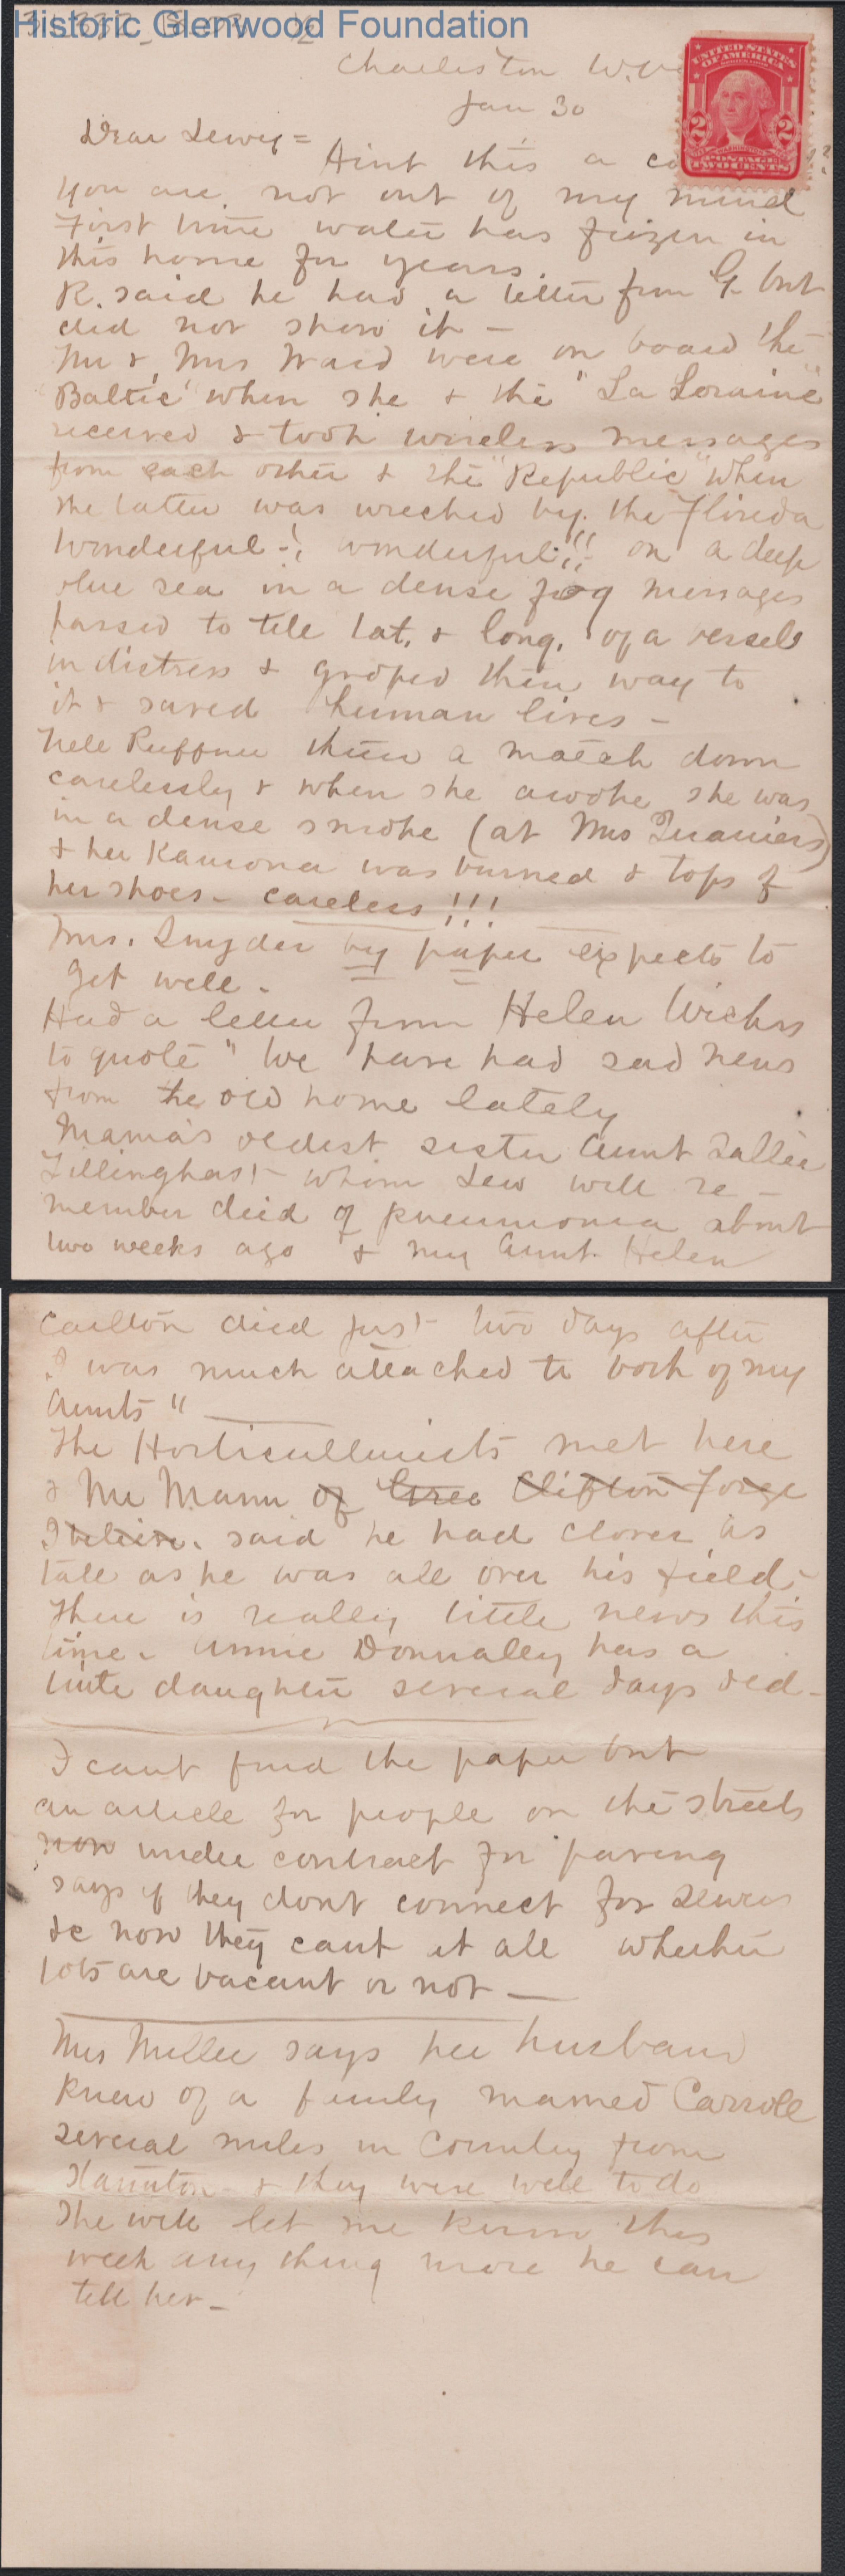 Historic Glenwood Foundation
Charleston W.Va
Jan 30
UNITED STATES
OF AMERICA
2 2
POSTAGE
TWO CENTS
Dear Lewey =
Aint this a
you are not out of my mind
First time water has frozen in
this home for years.
R. said he had a letter from G but
did not show it -
Mr & Mrs Ward were on board the
"Baltic" when she & the "La Loraine"
received & took wireless messages
from each other & the "Republic" when
she later was wrecked by the Florida
Wonderful -! wonderful!! on a deep
blue sea in a dense fog messages
passed to tele lat. & long. of a vessels
in distress & groped their way to
it & saved human lives -
Nele Ruffner threw a match down
carelessly & when she awoke she was
in a dense smoke (at Mrs
& her Kamona was burned & tops of
her shoes - careless!!!
Mrs. Snyder by paper expects to
get well.
Had a letter from Helen Wickes
to quote "We have had sad news
from the old home lately
Mama's oldest sister Aunt Sallie
Tillinghast whom Lew will re -
member died of pneumonia about
two weeks ago & my Aunt Helen
Carlton died just two days after
I was much attached to both of my
Aunts"
The Horticulturists met here
& Mr Mann of Gree Clifton Forge
I believe. said he had clover as
tall as he was all over his field.
There is really little news this
time. Annie Donnalley has a
little daughter several days old -
I cant find the paper but
an article for people on the streets
now under contract for paving
says if they dont connect for sewers
&c now they cant at all whether
lots are vacant or not -
Mrs Miller says her husband
knew of a family named Carroll
several miles in Country from
Staunton & they were well to do
She will let me know this
week any thing more he can
tell her -